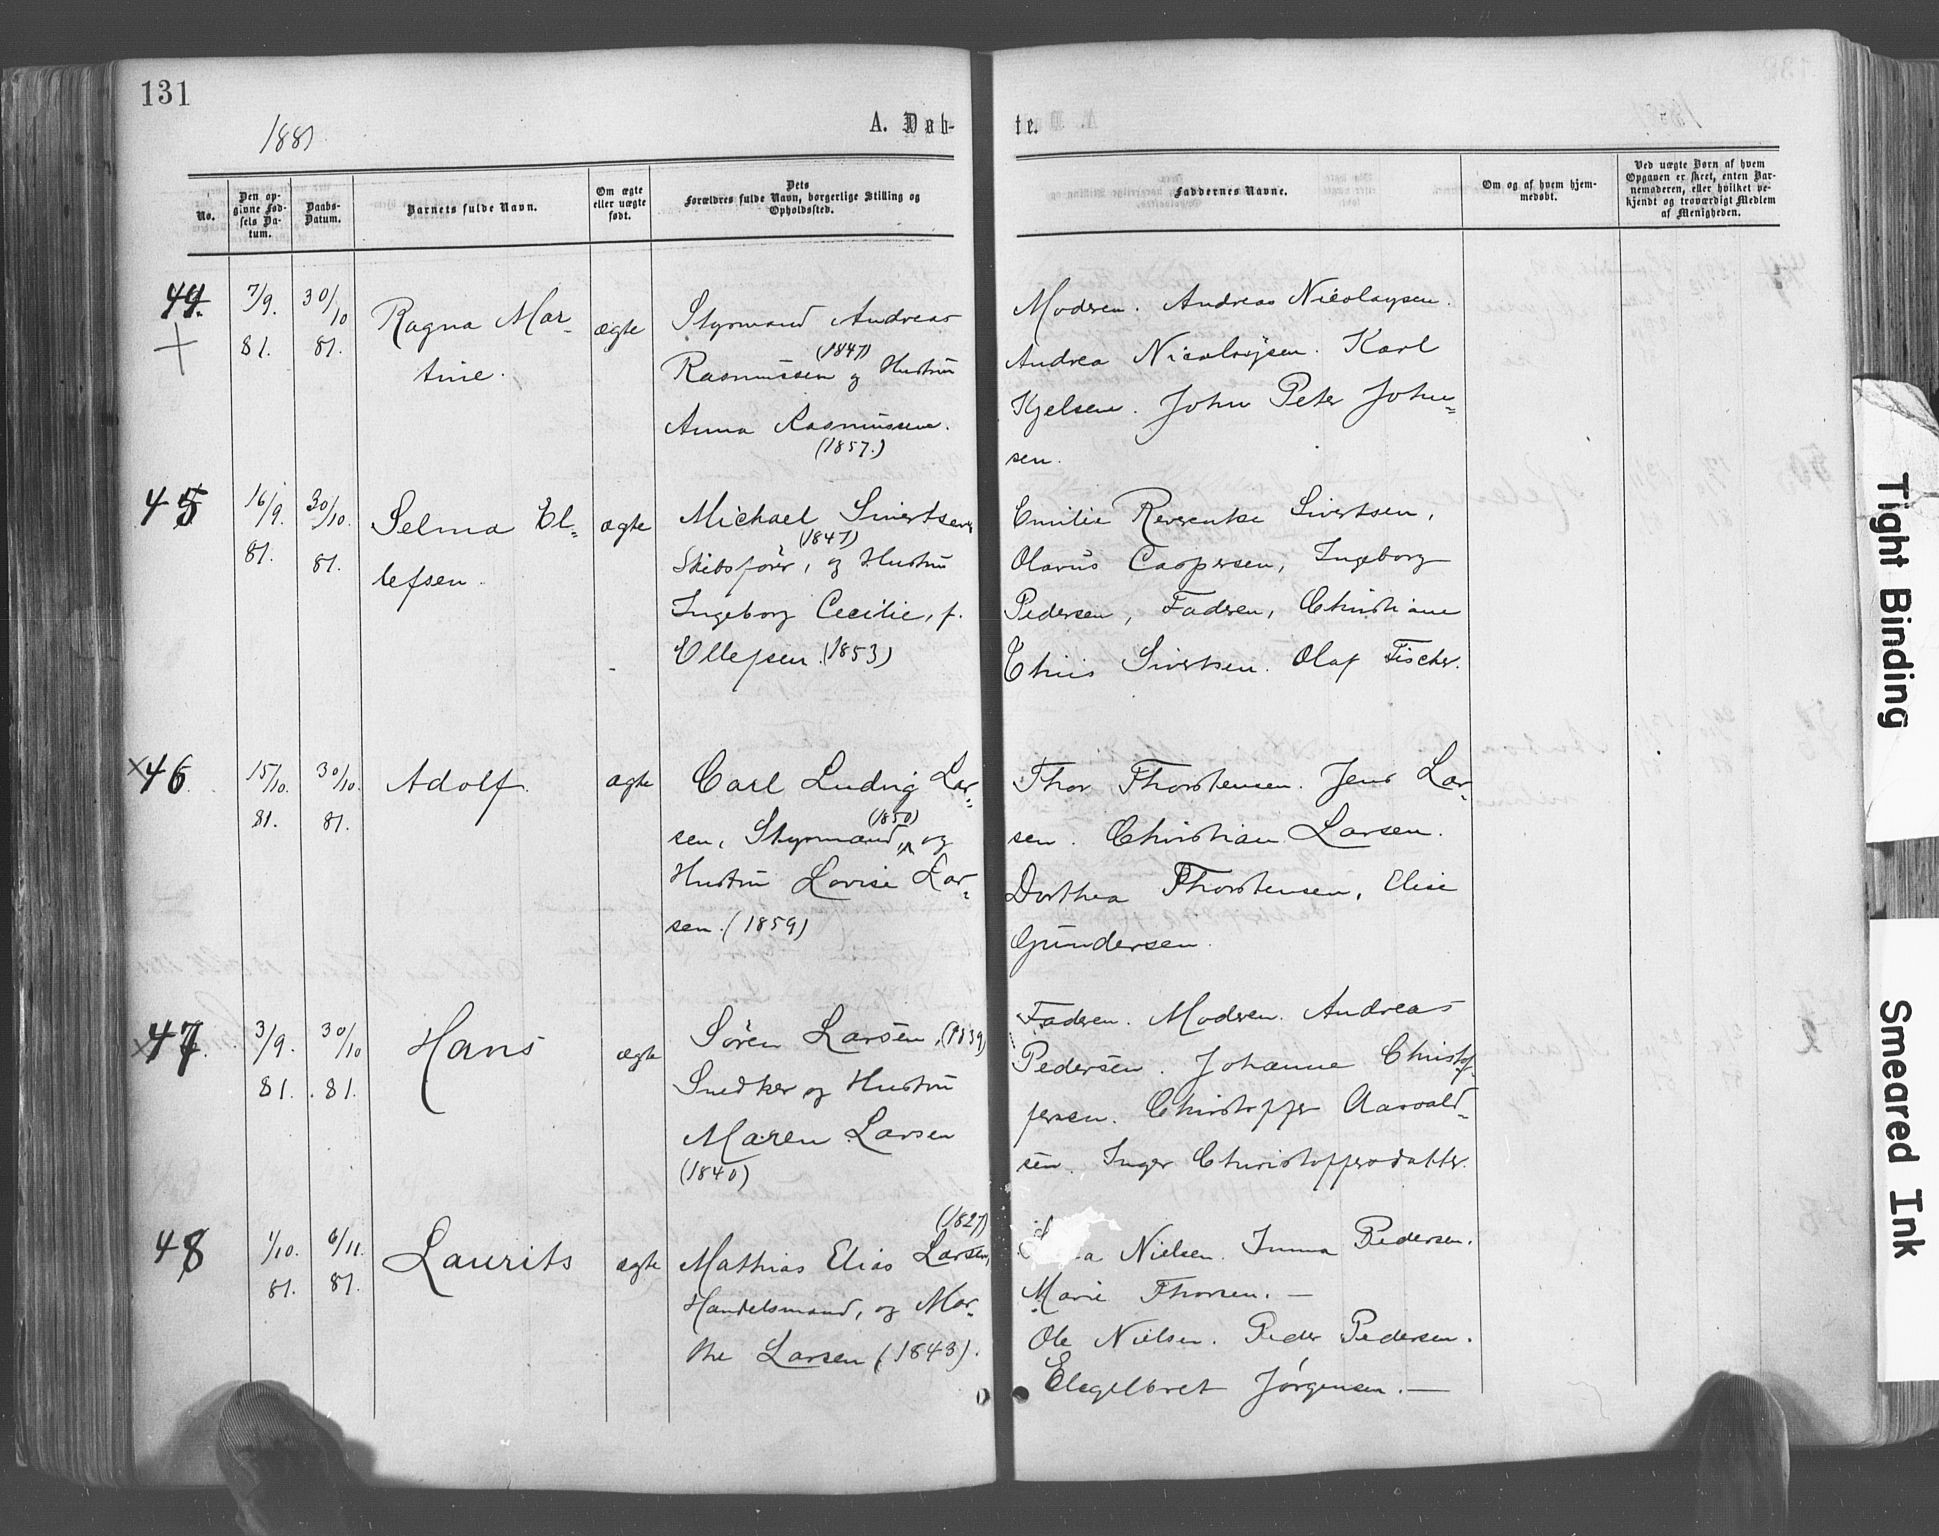 131
1881
A. Døb-
te.
No.
Den op-
givne Fød-
sels Da-
tum.
Daabs-
Datum.
Barnets fulde Navn.
Om ægte
eller uægte
født.
Dets
Forældres fulde Navn, borgerlige Stilling og
Opholdssted.
Faddernes Navne.
Om og af hvem hjem-
medøbt.
Ved uægte Børn af hvem
Opgaven er skeet, enten Bar-
nemoderen, eller hvilket be-
kjendt og troværdigt Medlem
af Menigheden.
44.
7/9.
81.
30/10
81.
Ragna Mar-
tine.
ægte
Styrmand Andreas
(1847)
Rasmussen og Hustru
Anna Rasmussen.
(1857.)
Modren. Andreas Nicolaysen.
Andrea Nicolaysen. Karl
Kjelsen. John Peter John=
sen.
45
16/9.
81.
30/10.
81.
Selma El=
lefsen.
ægte
Michael Sivertsen,
(1847)
Skibsfører, og Hustru
Ingeborg Cecilie, f.
Ellefsen. (1853)
Emilie Sivertsen,
Olavus Caspersen, Ingeborg
Pedersen, Faderen, Christiane
Sivertsen. Olaf Fischer.
×46
15/10.
81.
30/10.
81.
Adolf.
ægte
Carl Ludvig Lar=
(1850)
sen, Styrmand, og
Hustru Lovise Lar=
sen. (1859)
Thor Thorstensen. Jens Lar=
sen. Christian Larsen.
Dorthea Thorstensen, Elise
Gundersen.
×47.
3/9.
81.
30/10
81.
Hans
ægte
Søren Larsen, (1839)
Snedker og Hustru
Maren Larsen
(1840)
Fadren. Modren. Andreas
Pedersen. Johanne Christof=
fersen. Christoffer Aasvald=
sen. Inger Christoffersdatter.
48
1/10.
81.
6/11.
81.
Laurits
ægte
(1827)
Mathias Elias Larsen,
Handelsmand, og Mar=
the Larsen (1843).
Nielsen. Inna Pedersen.
Marie Thorsen. —
Ole Nielsen. Peder Pedersen.
Engelbret Jørgensen. —
Tight Binding
Smeared Ink